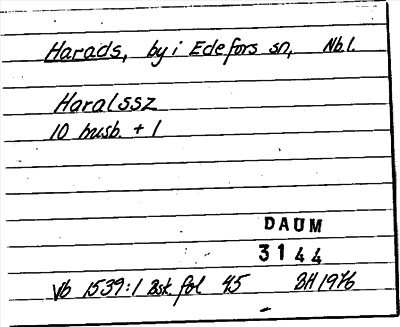 Harads, by i Edefors sn, Nb l.
Haralssz
10 husb. + 1
DAUM
3144
Vb 1539:1 Bsk. fol 45 BH 1976